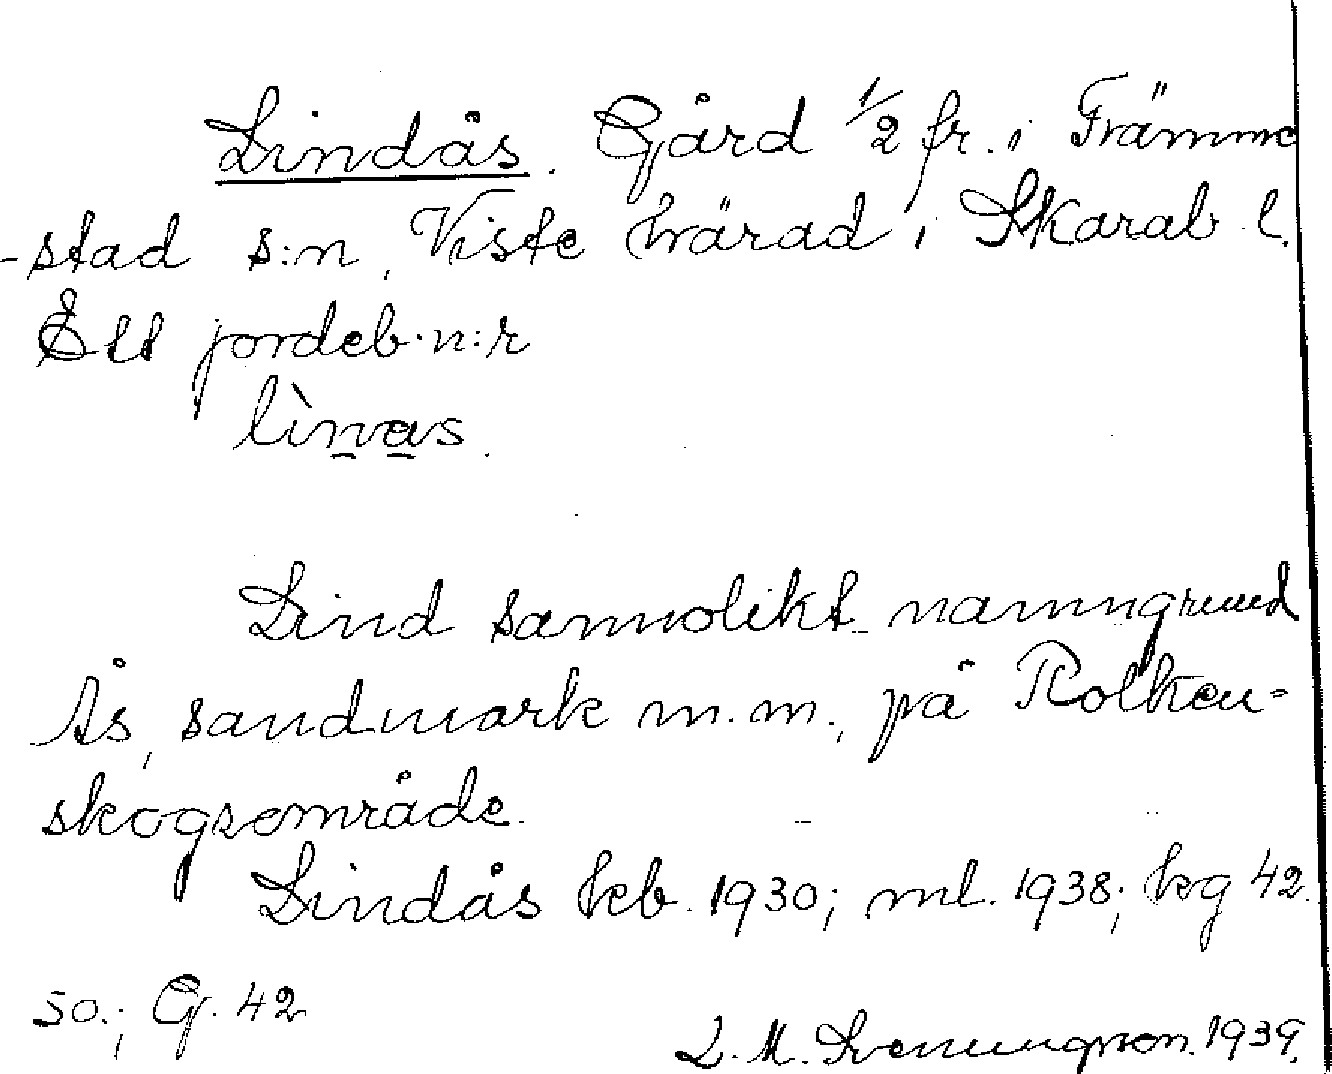 Lindås. Gård 1/2 fr. i Främme
-stad s:n, Viste härad, Skarab. l.
Ett jordeb. n:r
lìnas.
Lind sannolikt namngrund
Ås, sandmark m.m., på
skogsområde.
Lindås kb. 1930; ml. 1938; kg 42.
so.; G. 42
L. M. Svenungsson. 1939.